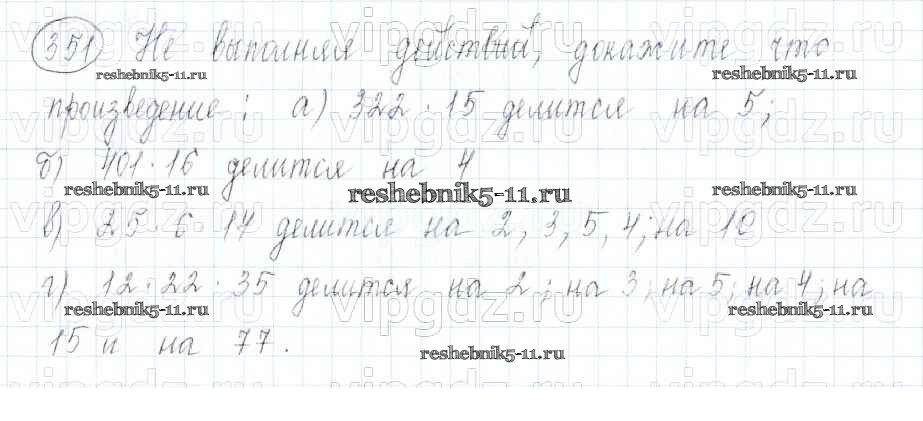 351 Не выполняя действий, докажите что
reshebnik5-11.ru reshebnik5-11.ru
произведение: а) 322 · 15 делится на 5;
б) 401 · 16 делится на 4
reshebnik5-11.ru reshebnik5-11.ru reshebnik5-11.ru
в) 25 · 6 · 14 делится на 2, 3, 5, 4; на 10
г) 12 · 22 · 35 делится на 2; на 3; на 5; на 4; на
reshebnik5-11.ru reshebnik5-11.ru
15 и на 77.
reshebnik5-11.ru